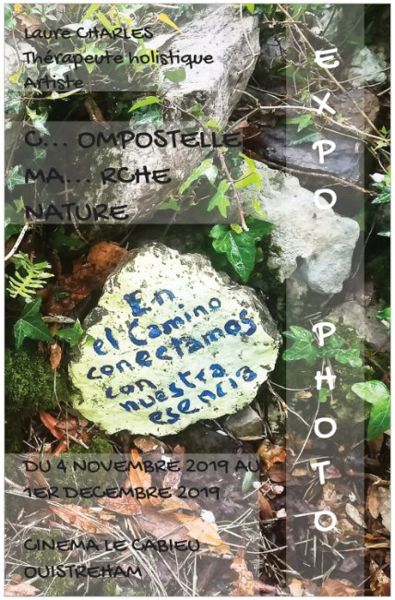 Laure CHARLES
Thérapeute holistique
Artiste
C... OMPOSTELLE
MA... RCHE
NATURE
EXPO PHOTO
En
el Camino
conectamos
con
nuestra
esencia
DU 4 NOVEMBRE 2019 AU
1ER DECEMBRE 2019
CINEMA LE CABIEU
OUISTREHAM